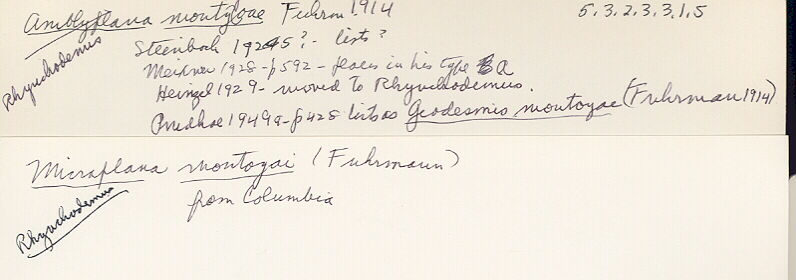 Amblyplana montoyae Fuhrm 1914 5.3.2.3.3.1.5
Rhynchodemus
Steinbock 1925?- lists?
Meixner 1928-p592 - places in his type A
Heinzel 1929- moved to Rhynchodemus.
Prudhoe 1949a-p428 lists as Geodesmis montoyae (Fuhrman 1914)
Microplana montoyai (Fuhrmann)
Rhynchodemus
from Columbia